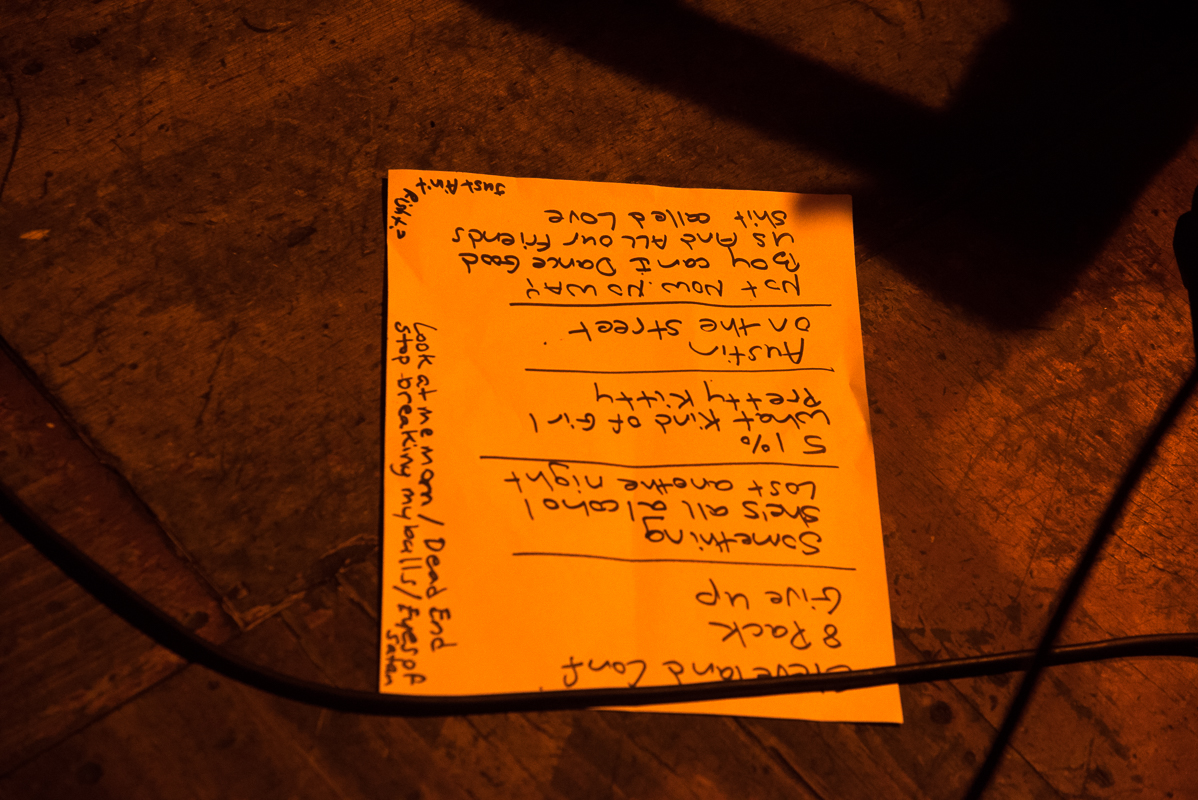 Cleveland Conf
8 Pack
Give up
Something
she's all alcohol
Lost anothe night
51%
What Kind of Girl
Pretty Kitty
Austin
on the street
Not Now. No WAY
Boy can't Dance Good
us And ALL our Friends
Shit called Love
Just Ain't
Right
Look at me mom / Dead End
Stop breaking my balls / Eyes of
Satan